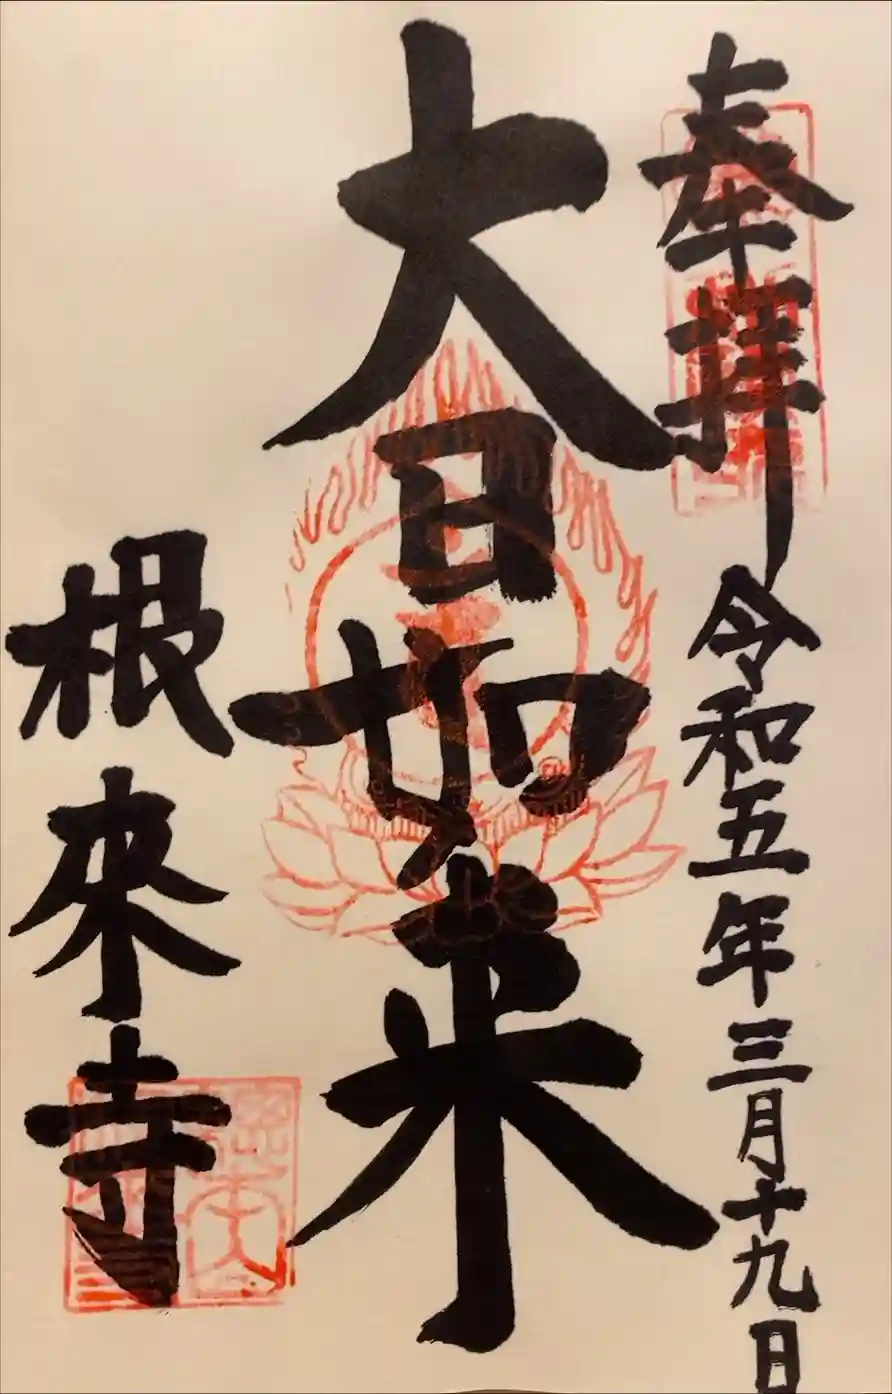 奉拝
令和五年三月十九日
大日如来
根来寺